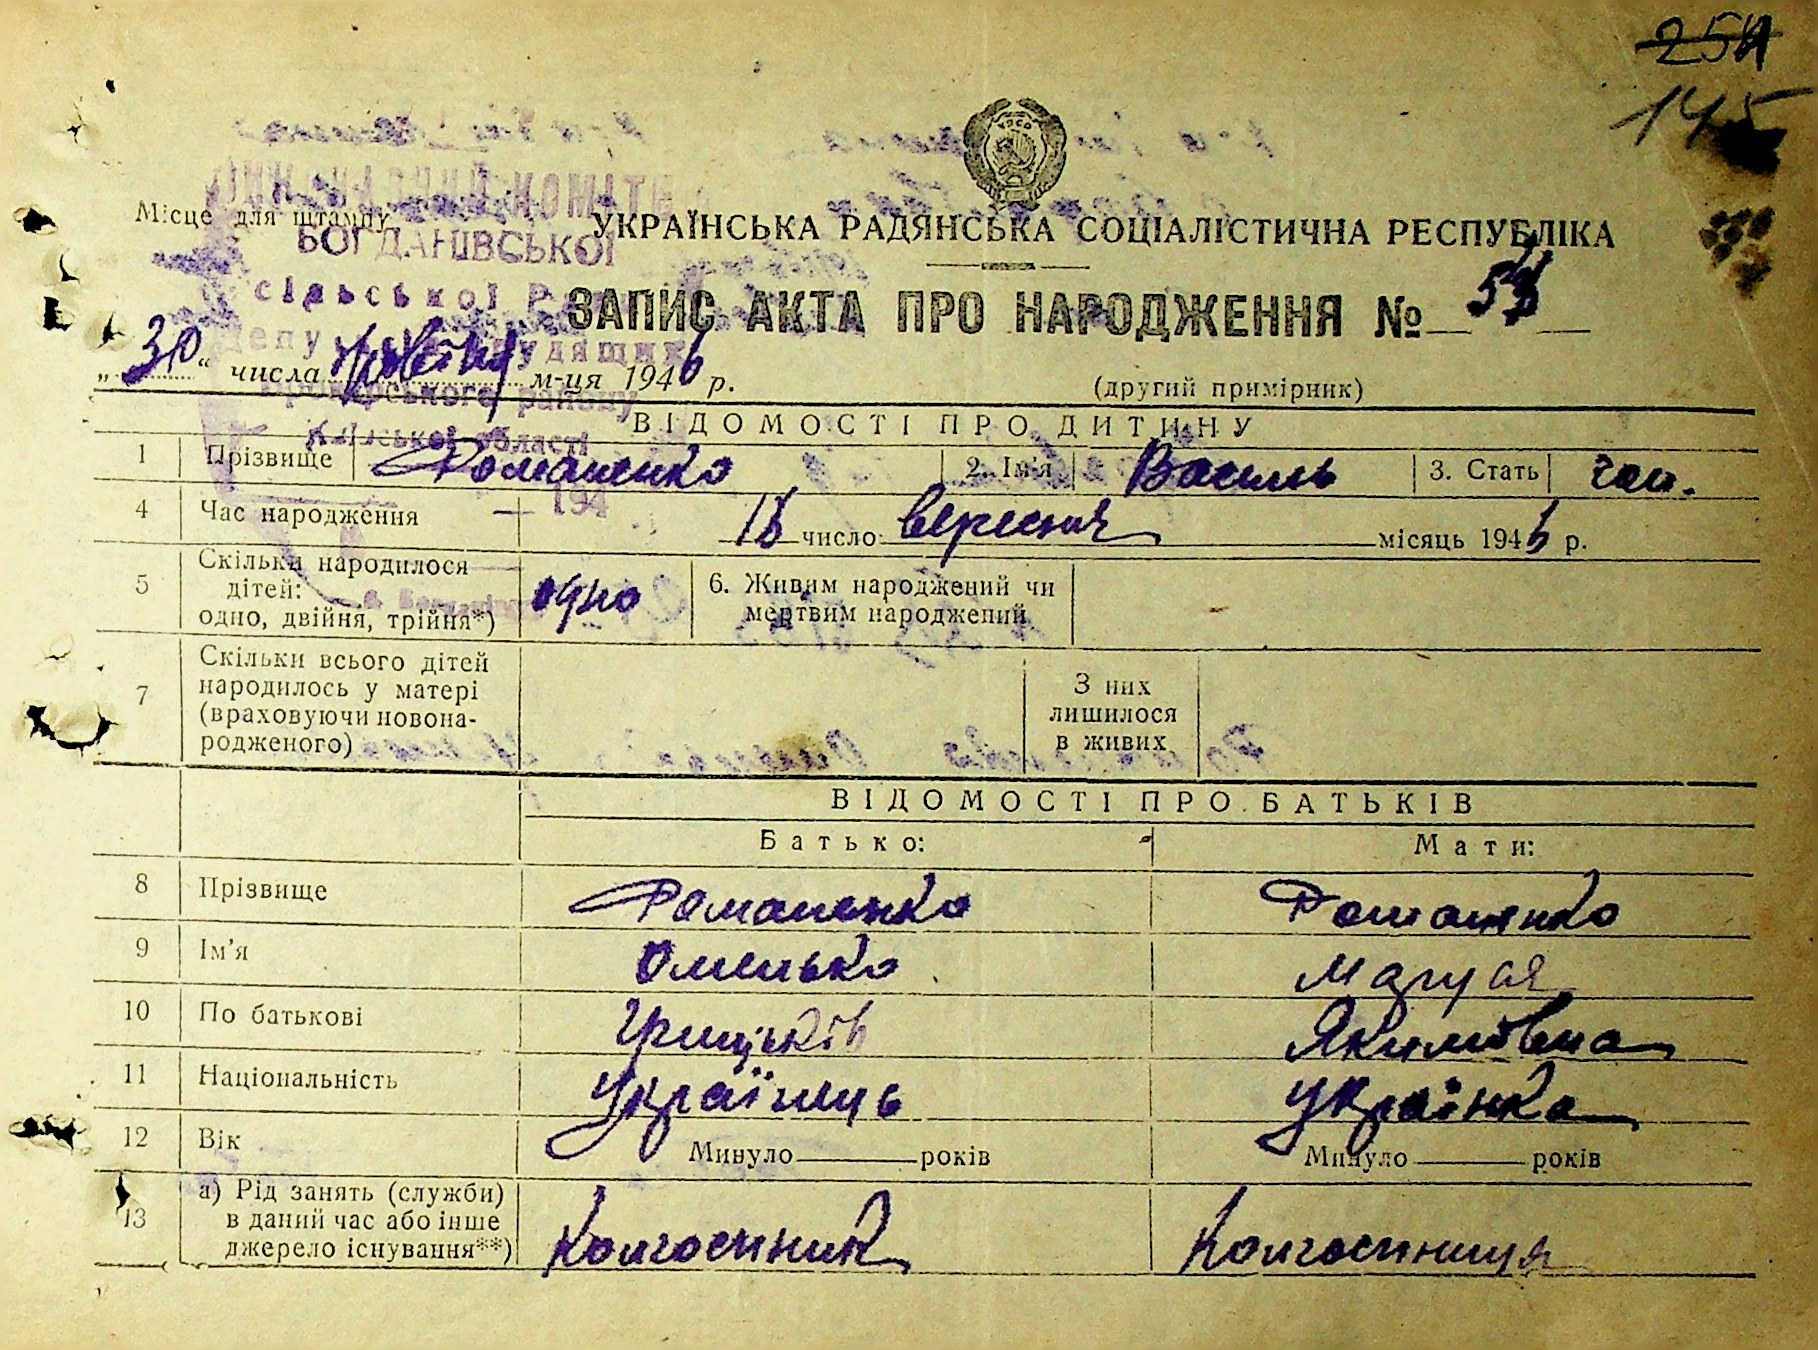 254
145
Місце для штампу
БОГДАНІВСЬКОЇ
сільської
УКРАЇНСЬКА РАДЯНСЬКА СОЦІАЛІСТИЧНА РЕСПУБЛІКА
ЗАПИС АКТА ПРО НАРОДЖЕННЯ №
„30“ числа жовтня м-ця 1946 р.
району
(другий примірник)
області
ВІДОМОСТІ ПРО ДИТИНУ
1 Прізвище Романенко 2. Ім'я Василь 3. Стать чол.
194
4 Час народження число вересня місяць 1946 р.
5 Скільки народилося дітей: одно, двійня, трійня*) одно 6. Живим народжений чи мертвим народжений
7 Скільки всього дітей народилось у матері (враховуючи новонародженого) З них лишилося в живих
ВІДОМОСТІ ПРО БАТЬКІВ
Батько: Мати:
8 Прізвище Романенко Романенко
9 Ім'я Омелько Маруся
10 По батькові Грицьків Якимовна
11 Національність Українець Українка
12 Вік Минуло років Минуло років
13 а) Рід занять (служби) в даний час або інше джерело існування**) Колгоспник Колгоспниця